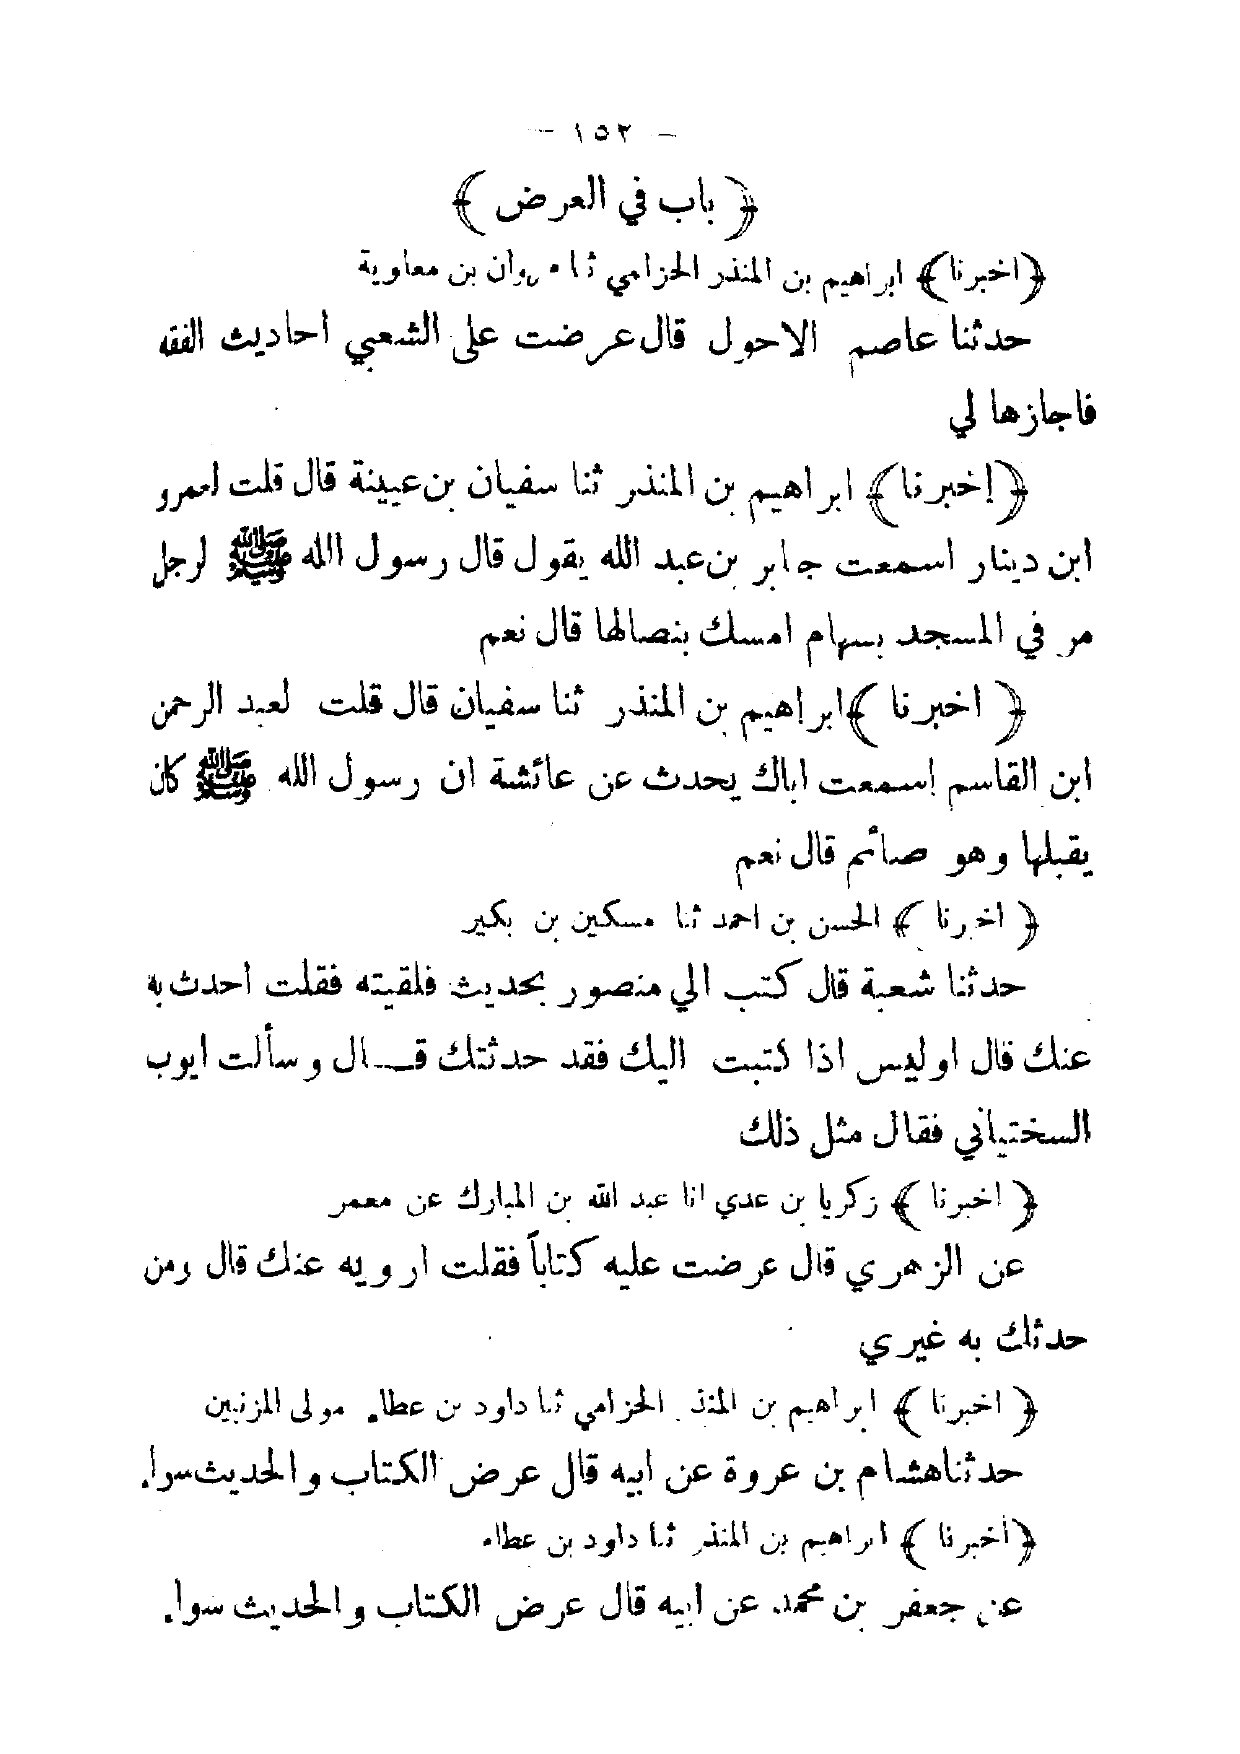 — ١٥٢ —
﴿ باب في العرض ﴾
﴿اخبرنا﴾ ابراهيم بن المنذر الحزامي ثنا مروان بن معاوية
حدثنا عاصم الاحول قال عرضت على الشعبي احاديث الفقه
فاجازها لي
﴿إخبرنا﴾ ابراهيم بن المنذر ثنا سفيان بن عيينة قال قلت لعمرو
ابن دينار اسمعت جابر بن عبد الله يقول قال رسول الله ﷺ لرجل
مر في المسجد بسهام امسك بنصالها قال نعم
﴿ اخبرنا ﴾ ابراهيم بن المنذر ثنا سفيان قال قلت لعبد الرحمن
ابن القاسم إسمعت اباك يحدث عن عائشة ان رسول الله ﷺ كان
يقبلها وهو صائم قال نعم
﴿ اخبرنا ﴾ الحسن بن احمد ثنا مسكين بن بكير
حدثنا شعبة قال كتب الي منصور بحديث فلقيته فقلت احدث به
عنك قال اوليس اذا كتبت اليك فقد حدثتك قال وسألت ايوب
السختياني فقال مثل ذلك
﴿ اخبرنا ﴾ زكريا بن عدي انا عبد الله بن المبارك عن معمر
عن الزهري قال عرضت عليه كتاباً فقلت ارويه عنك قال ومن
حدثك به غيري
﴿ اخبرنا ﴾ ابراهيم بن المنذر الحزامي ثنا داود بن عطاء مولى المزنيين
حدثنا هشام بن عروة عن ابيه قال عرض الكتاب والحديث سواء
﴿أخبرنا ﴾ ابراهيم بن المنذر ثنا داود بن عطاء
عن جعفر بن محمد عن ابيه قال عرض الكتاب والحديث سواء